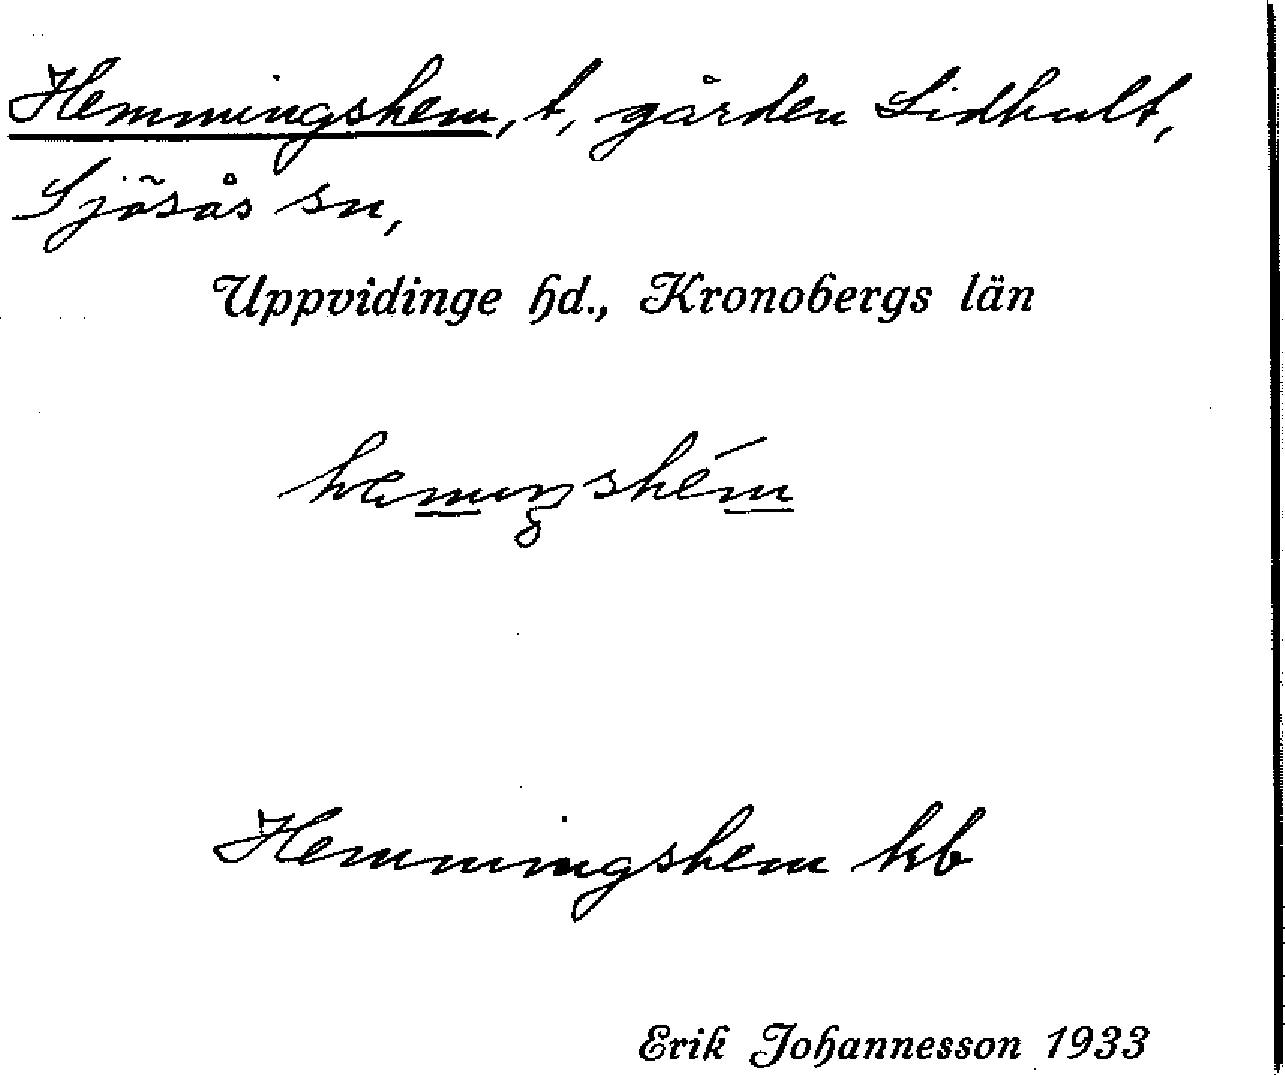 Hemmingshem, t, gården Lidhult,
Sjösås sn,
Uppvidinge hd., Kronobergs län
Hemmingshem kb
Erik Johannesson 1933